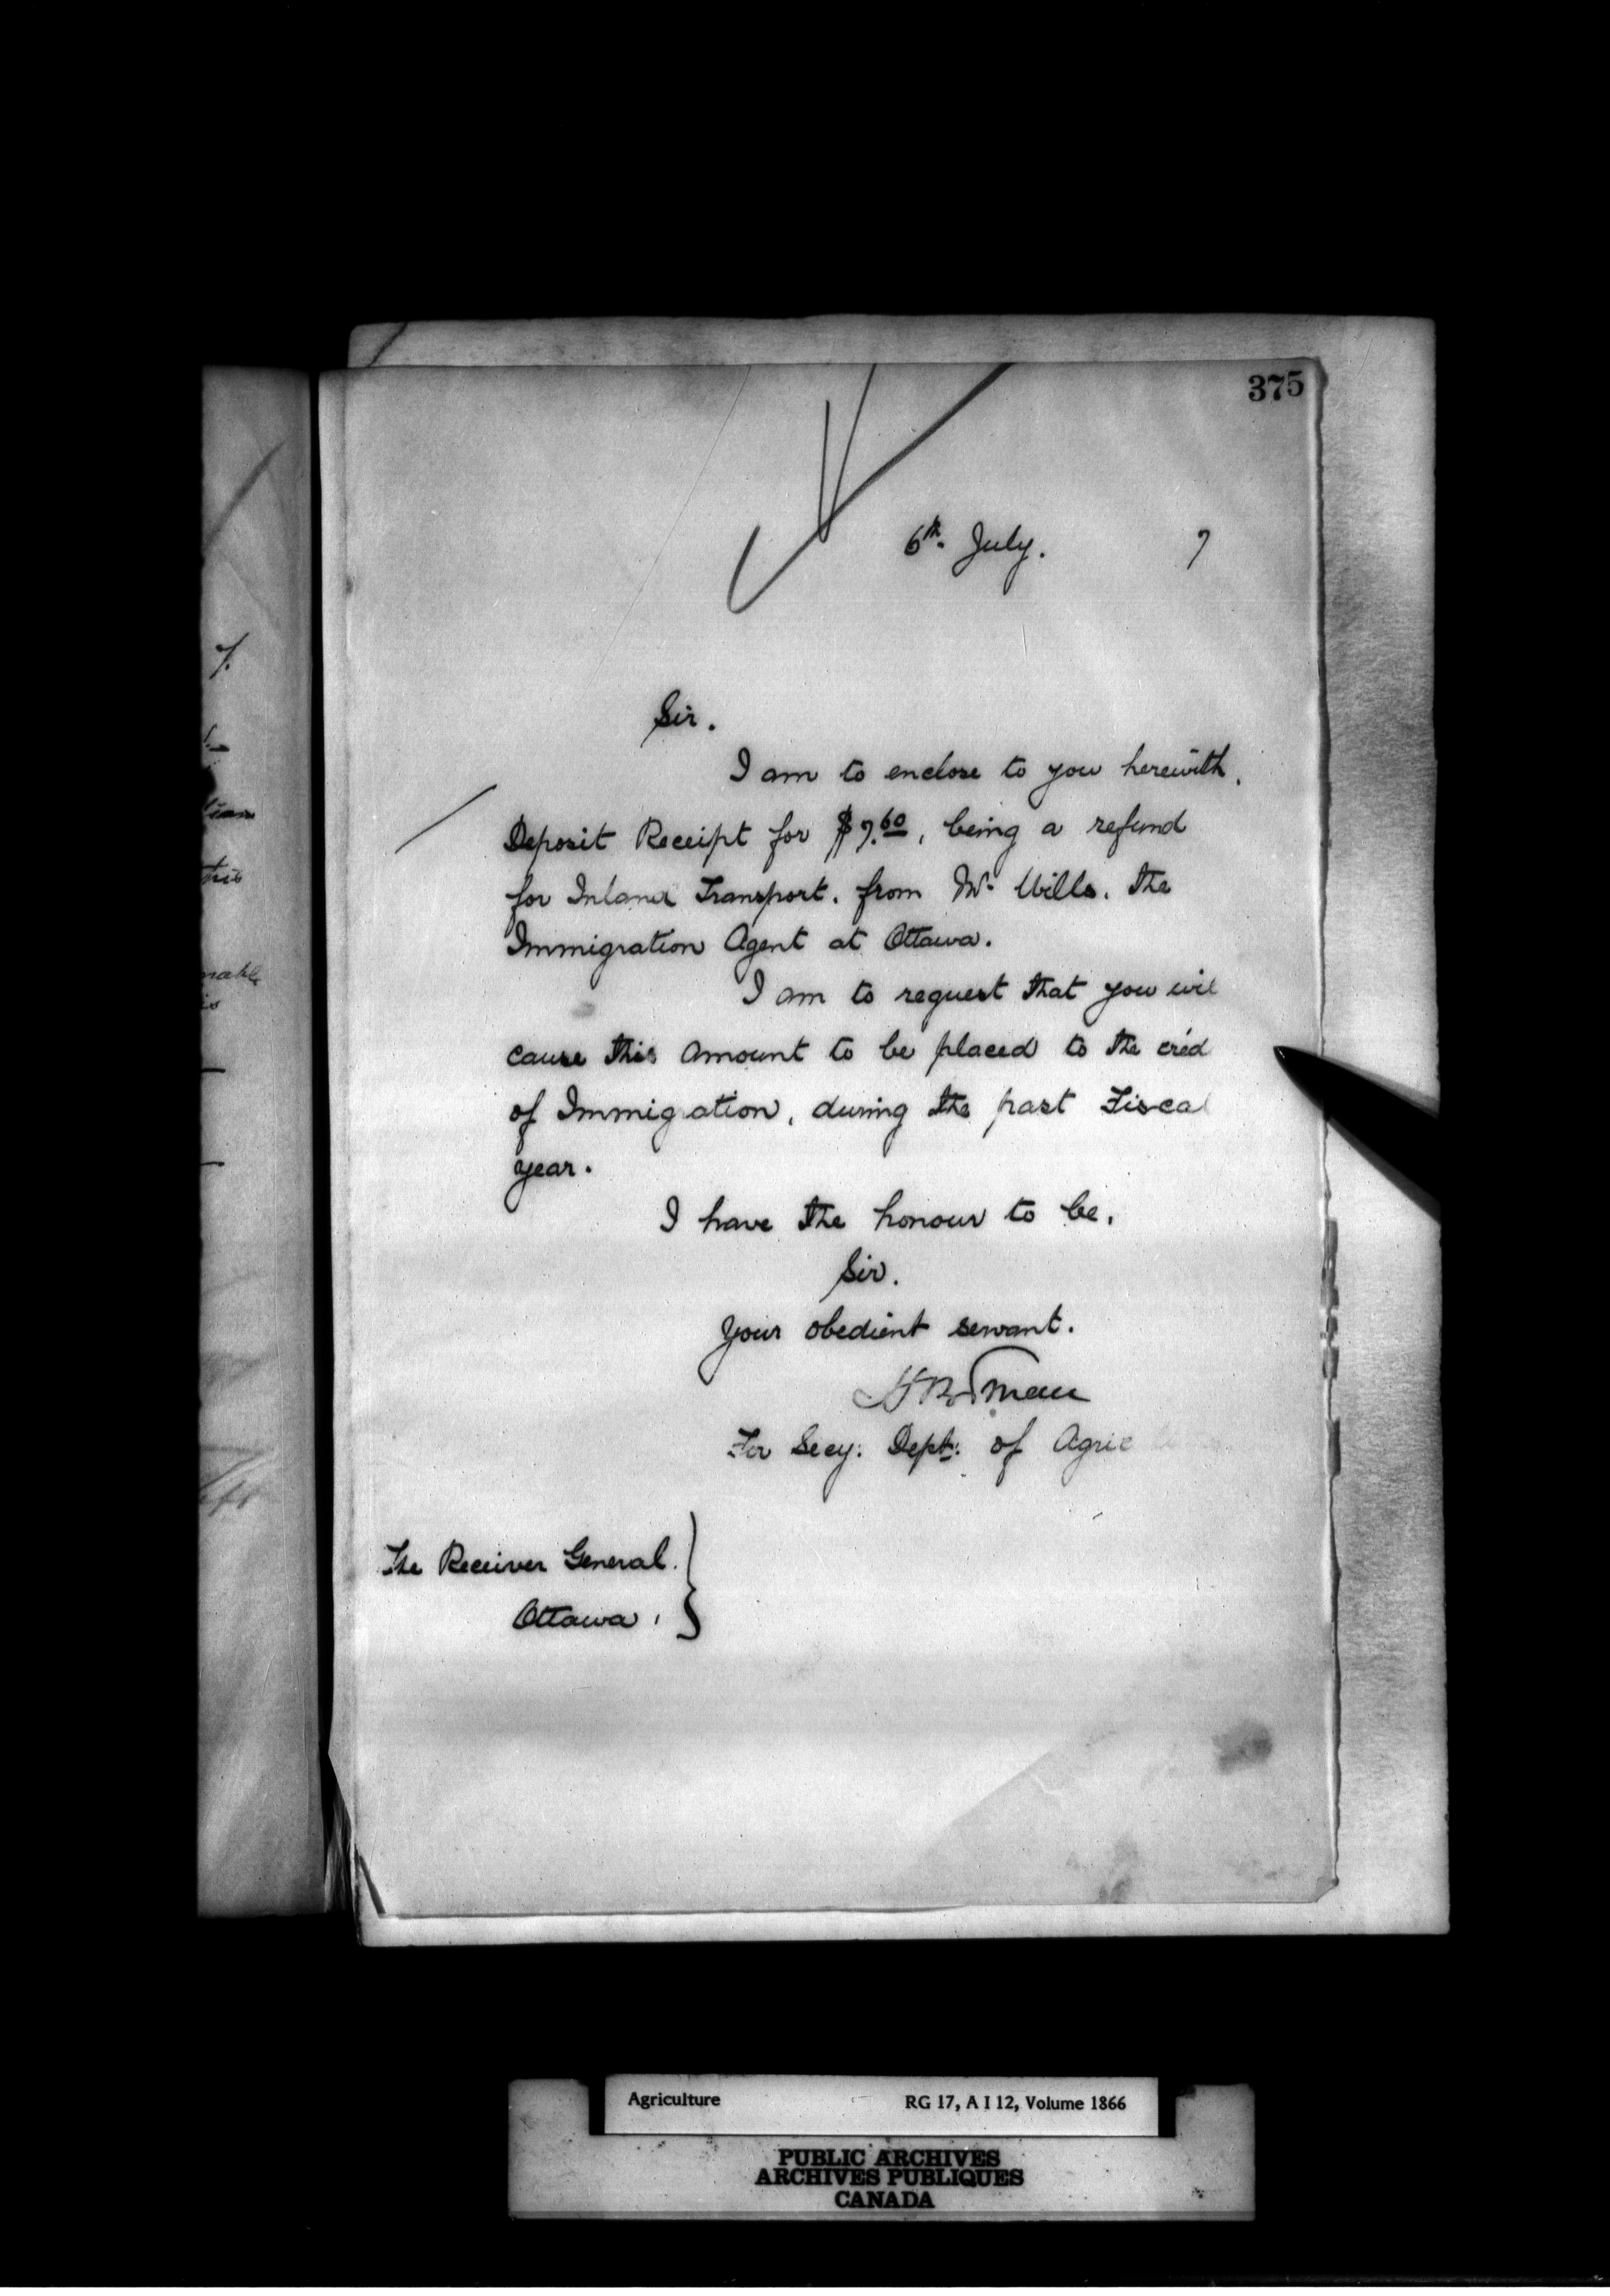 375
6th. July. 7
Sir.
I am to enclose to you herewith.
Deposit Receipt for $7.60, being a refund
for Inland Transport. from Mr Wills. the
Immigration Agent at Ottawa.
I am to request that you wil
cause this amount to be placed to the cred
of Immigration, during the past Fiscal
year.
I have the honour to be.
Sir.
Your obedient servant.
For Secy: Dept: of Agric
The Receiver General.
Ottawa.
Agriculture RG 17, A I 12, Volume 1866
PUBLIC ARCHIVES
ARCHIVES PUBLIQUES
CANADA